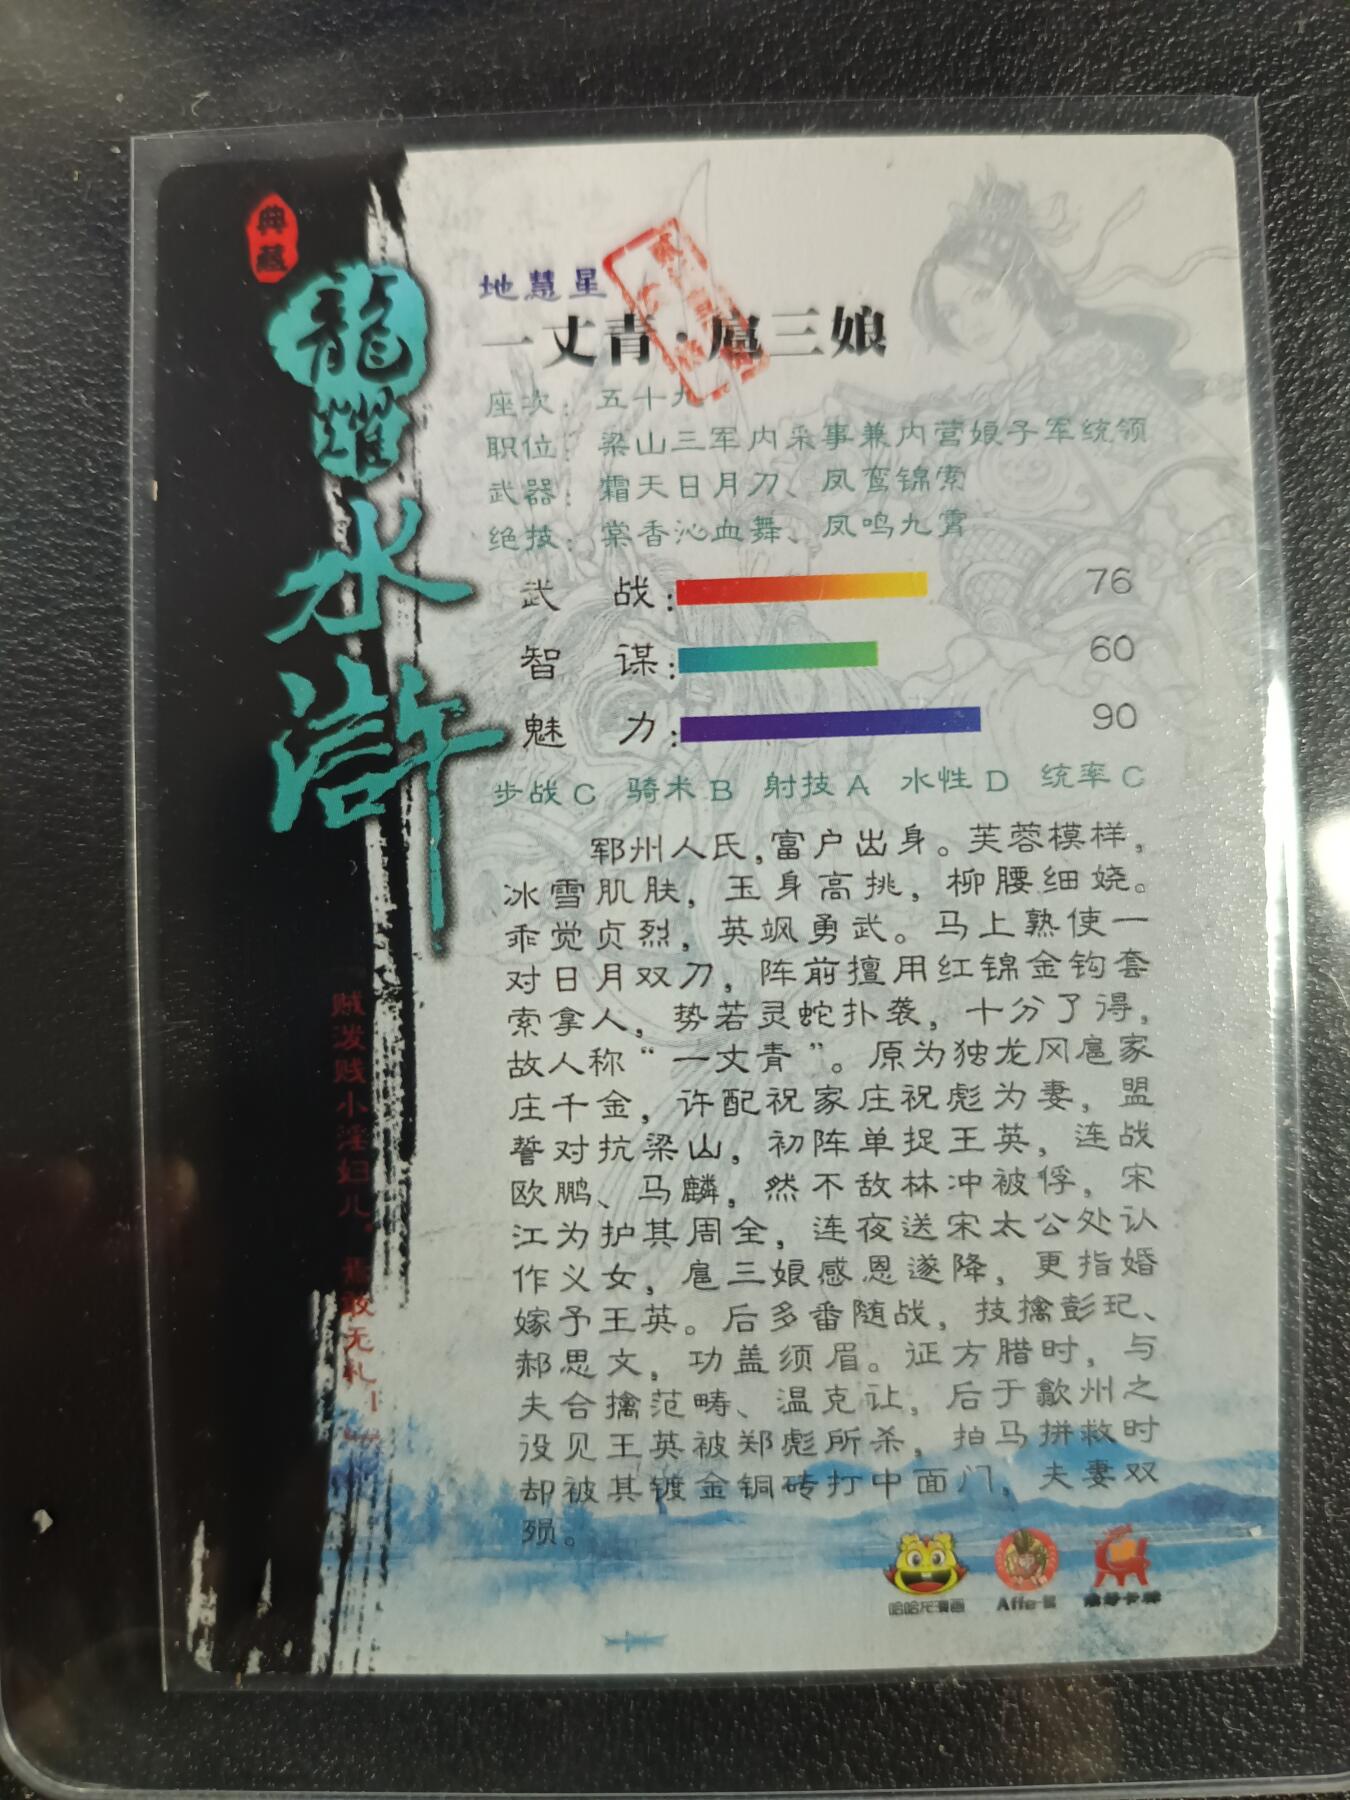 典藏
龍耀水滸
地慧星
一丈青·扈三娘
座次：五十九
职位：梁山三军内采事兼内营娘子军统领
武器：霜天日月刀、凤鸾锦索
绝技：棠香沁血舞、凤鸣九霄
武 战：76
智 谋：60
魅 力：90
步战C 骑术B 射技A 水性D 统率C
郓州人氏，富户出身。芙蓉模样，
冰雪肌肤，玉身高挑，柳腰细娆。
乖觉贞烈，英飒勇武。马上熟使一
对日月双刀，阵前擅用红锦金钩套
索拿人，势若灵蛇扑袭，十分了得，
故人称“一丈青”。原为独龙冈扈家
庄千金，许配祝家庄祝彪为妻，盟
誓对抗梁山，初阵单捉王英，连战
欧鹏、马麟，然不敌林冲被俘，宋
江为护其周全，连夜送宋太公处认
作义女，扈三娘感恩遂降，更指婚
嫁予王英。后多番随战，技擒彭玘、
郝思文，功盖须眉。征方腊时，与
夫合擒范畴、温克让，后于歙州之
役见王英被郑彪所杀，拍马拼救时
却被其镀金铜砖打中面门，夫妻双
殒。
贼泼贱小淫妇儿，焉敢无礼！
哈哈龙漫画
Affe